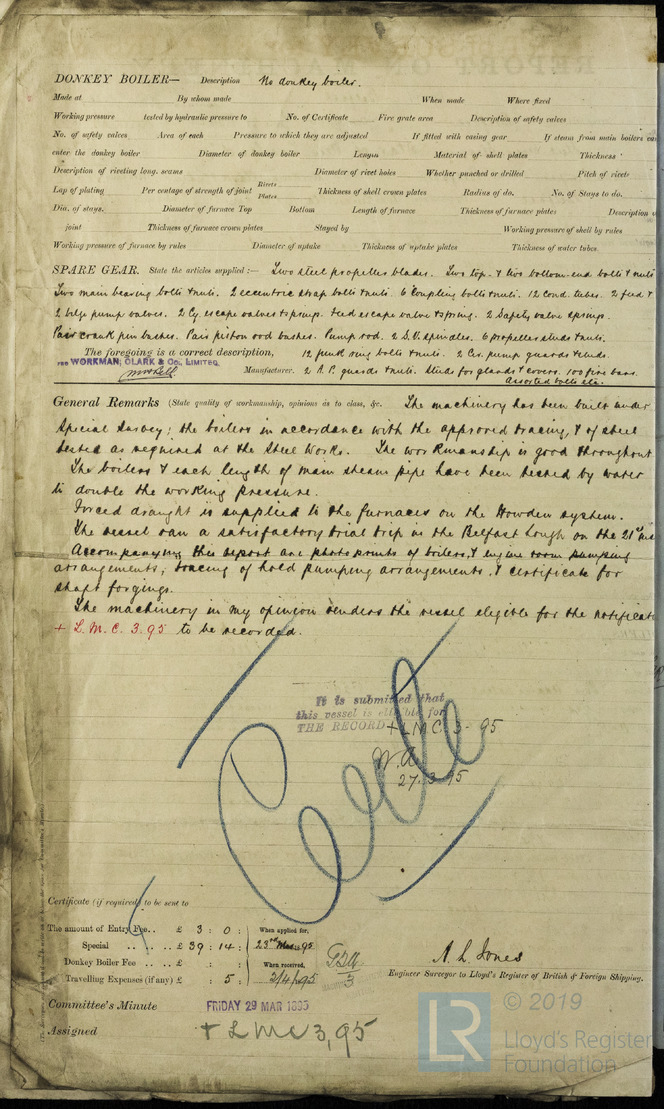 DONKEY BOILER— Description No donkey boiler.
Made at By whom made When made Where fixed
Working pressure tested by hydraulic pressure to No. of Certificate Fire grate area Description of safety valves
No. of safety valves Area of each Pressure to which they are adjusted If fitted with easing gear If steam from main boilers can
enter the donkey boiler Diameter of donkey boiler Length Material of shell plates Thickness
Description of riveting long. seams Diameter of rivet holes Whether punched or drilled Pitch of rivets
Lap of plating Per centage of strength of joint Rivets Plates Thickness of shell crown plates Radius of do. No. of Stays to do.
Dia. of stays. Diameter of furnace Top Bottom Length of furnace Thickness of furnace plates Description o
joint Thickness of furnace crown plates Stayed by Working pressure of shell by rules
Working pressure of furnace by rules Diameter of uptake Thickness of uptake plates Thickness of water tubes
SPARE GEAR. State the articles supplied:— Two steel propeller blades. Two top & two bottom end bolts & nuts
Two main bearing bolts & nuts. 2 eccentric strap bolts & nuts. 6 Coupling bolts & nuts. 12 cond. tubes. 2 feed &
2 bilge pump valves. 2 Cy. escape valves & springs. Feed escape valve & spring. 2 Safety valve springs.
Pair crank pin bushes. Pair piston rod bushes. Pump rod. 2 S.V. spindles. 6 propeller studs & nuts.
The foregoing is a correct description, 12 junk ring bolts & nuts. 2 Cir. pump guards & studs.
FOR WORKMAN, CLARK & Co. LIMITED Manufacturer. 2 A.P. guards & nuts. Studs for glands & covers. 100 fire bars.
Assorted bolts etc.
General Remarks (State quality of workmanship, opinions as to class, &c. The machinery has been built under
Special Survey; the boilers in accordance with the approved tracing, & of steel
tested as required at the Steel Works. The workmanship is good throughout
The boilers & each length of main steam pipe have been tested by water
to double the working pressure.
Forced draught is supplied to the furnaces on the Howden system.
The vessel ran a satisfactory trial trip in the Belfast Lough on the 21st ins
Accompanying this report are photoprints of boilers, & engine room pumping
arrangements; tracing of hold pumping arrangements, & certificate for
shaft forgings.
The machinery in my opinion renders the vessel eligible for the notificati
+ L.M.C. 3.95 to be recorded.
It is submitted that
this vessel is eligible for
THE RECORD + LMC. 3-95
27.3.95
Certificate (if required) to be sent to
The amount of Entry Fee.. £ 3 : 0 : When applied for,
Special .. .. .. £ 39 : 14 : 23rd Mar. 95
Donkey Boiler Fee .. .. £ : : When received,
Travelling Expenses (if any) £ : 5 : 2/4/95
A. L. Jones
Engineer Surveyor to Lloyd's Register of British & Foreign Shipping.
Committee's Minute FRIDAY 29 MAR 1895
Assigned + LMC 3,95
© 2019
LR Lloyd's Register
Foundation